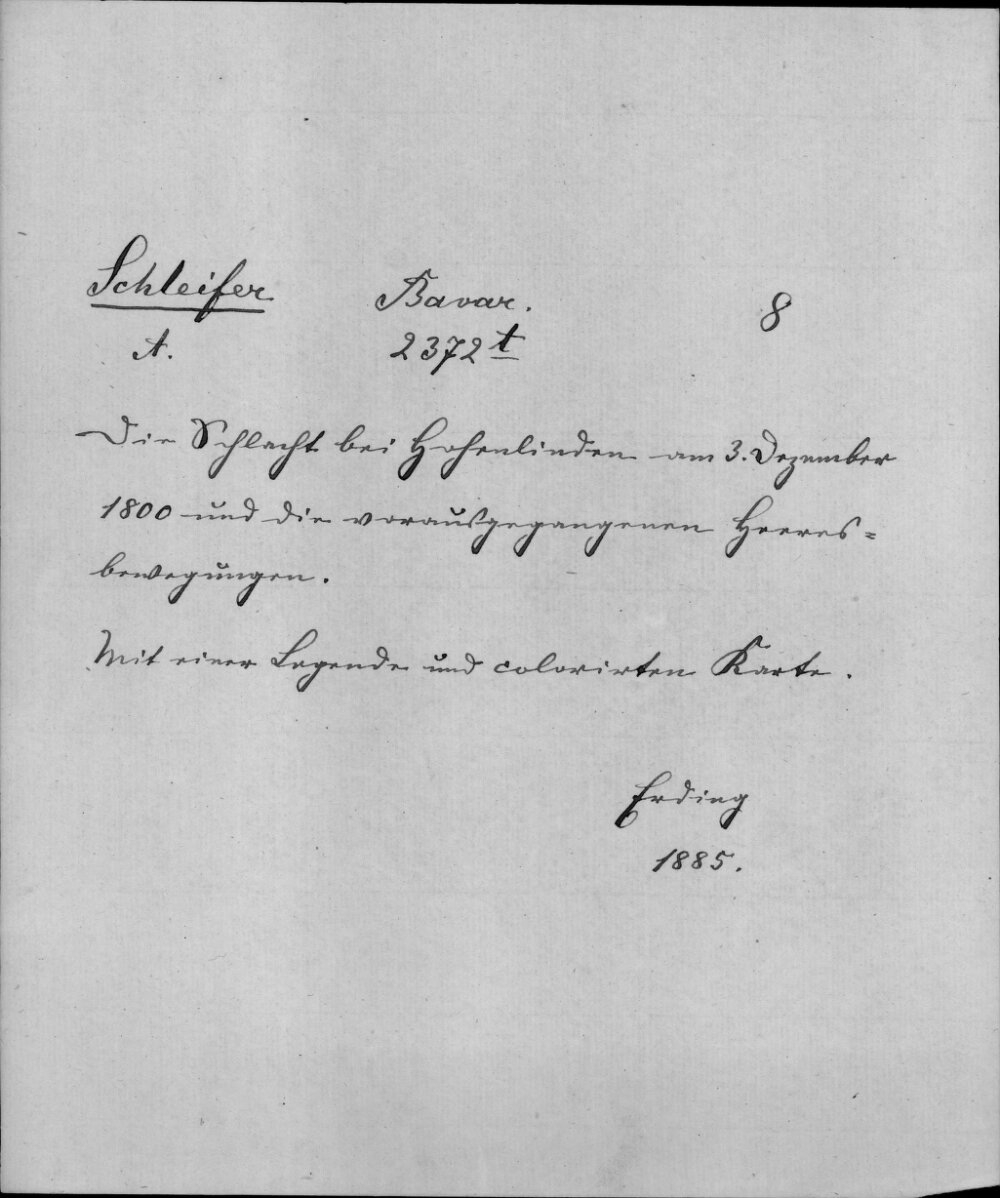 Schleifer Bavar. 8
A. 2372 t
Die Schlacht bei Hohenlinden am 3. Dezember
1800 und die vorausgegangenen Heeres=
bewegungen.
Mit einer Legende und colorirten Karte.
Erding
1885.